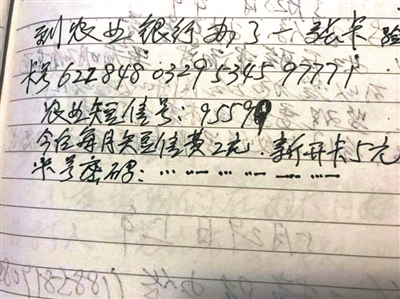 到农业银行办了一张卡
卡号622848 0329 5345 97771
农业短信号：95599
每月短信费2元.新开卡5元
卡号密码：